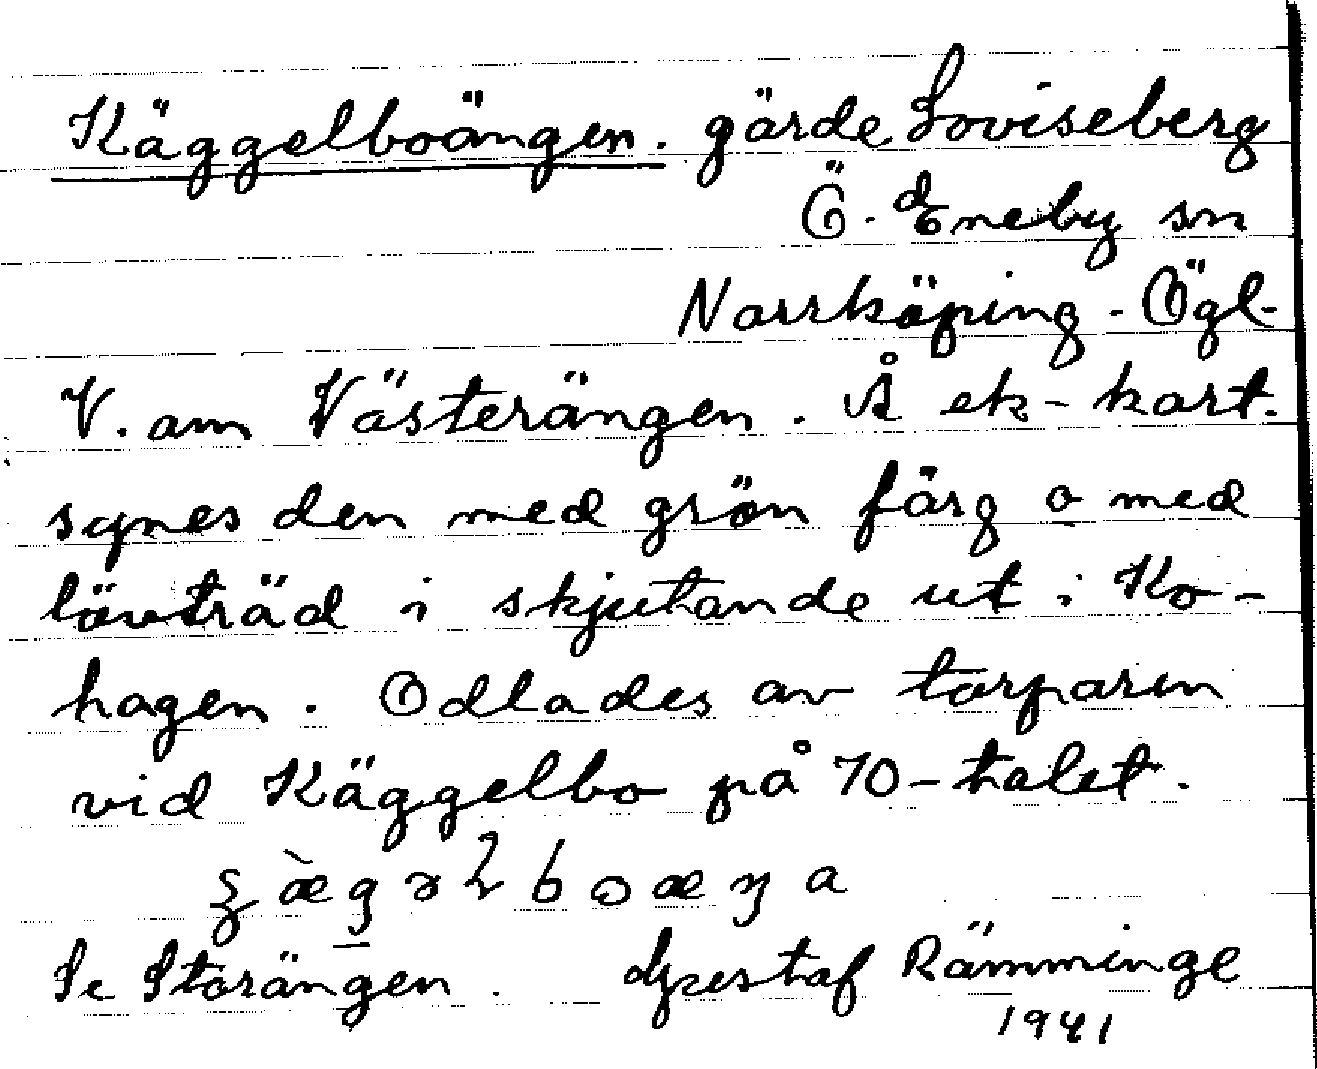 Käggelboängen. gärde Loviseberg
Ö. Eneby sn
Norrköping - Ögl-
V. om Västerängen. Å ek-kart.
synes den med grön färg o med
lövträd i skjutande ut i Ko-
hagen. Odlades av torparen
vid Käggelbo på 70-talet.
Se Storängen. Gustaf Rämminge
1941